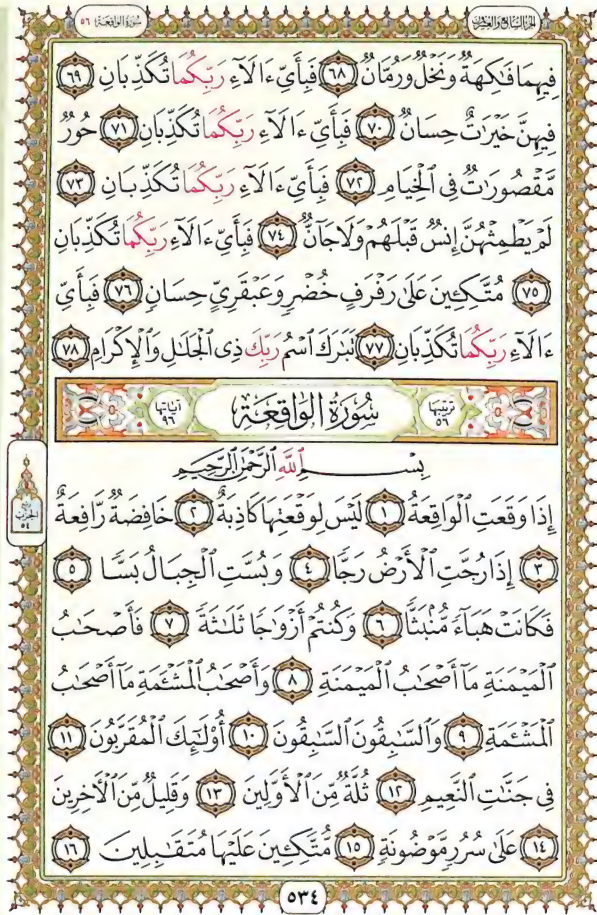 سُورَةُ الوَاقِعَة ٥٦
الجزء السابع والعشرون
فِيهِمَا فَـٰكِهَةٌ وَنَخْلٌ وَرُمَّانٌ ٦٨ فَبِأَيِّ ءَالَآءِ رَبِّكُمَا تُكَذِّبَانِ ٦٩
فِيهِنَّ خَيْرَٰتٌ حِسَانٌ ٧٠ فَبِأَيِّ ءَالَآءِ رَبِّكُمَا تُكَذِّبَانِ ٧١ حُورٌ
مَّقْصُورَٰتٌ فِى ٱلْخِيَامِ ٧٢ فَبِأَيِّ ءَالَآءِ رَبِّكُمَا تُكَذِّبَانِ ٧٣
لَمْ يَطْمِثْهُنَّ إِنسٌ قَبْلَهُمْ وَلَا جَآنٌّ ٧٤ فَبِأَيِّ ءَالَآءِ رَبِّكُمَا تُكَذِّبَانِ
٧٥ مُتَّكِـِٔينَ عَلَىٰ رَفْرَفٍ خُضْرٍ وَعَبْقَرِىٍّ حِسَانٍ ٧٦ فَبِأَيِّ
ءَالَآءِ رَبِّكُمَا تُكَذِّبَانِ ٧٧ تَبَـٰرَكَ ٱسْمُ رَبِّكَ ذِى ٱلْجَلَـٰلِ وَٱلْإِكْرَامِ ٧٨
ترتيبها ٥٦ سُورَةُ الوَاقِعَة آياتها ٩٦
بِسْمِ ٱللَّهِ ٱلرَّحْمَـٰنِ ٱلرَّحِيمِ
إِذَا وَقَعَتِ ٱلْوَاقِعَةُ ١ لَيْسَ لِوَقْعَتِهَا كَاذِبَةٌ ٢ خَافِضَةٌ رَّافِعَةٌ
٣ إِذَا رُجَّتِ ٱلْأَرْضُ رَجًّا ٤ وَبُسَّتِ ٱلْجِبَالُ بَسًّا ٥
فَكَانَتْ هَبَآءً مُّنۢبَثًّا ٦ وَكُنتُمْ أَزْوَٰجًا ثَلَـٰثَةً ٧ فَأَصْحَـٰبُ
ٱلْمَيْمَنَةِ مَآ أَصْحَـٰبُ ٱلْمَيْمَنَةِ ٨ وَأَصْحَـٰبُ ٱلْمَشْـَٔمَةِ مَآ أَصْحَـٰبُ
ٱلْمَشْـَٔمَةِ ٩ وَٱلسَّـٰبِقُونَ ٱلسَّـٰبِقُونَ ١٠ أُو۟لَـٰٓئِكَ ٱلْمُقَرَّبُونَ ١١
فِى جَنَّـٰتِ ٱلنَّعِيمِ ١٢ ثُلَّةٌ مِّنَ ٱلْأَوَّلِينَ ١٣ وَقَلِيلٌ مِّنَ ٱلْـَٔاخِرِينَ
١٤ عَلَىٰ سُرُرٍ مَّوْضُونَةٍ ١٥ مُّتَّكِـِٔينَ عَلَيْهَا مُتَقَـٰبِلِينَ ١٦
الحزب ٥٤
٥٣٤